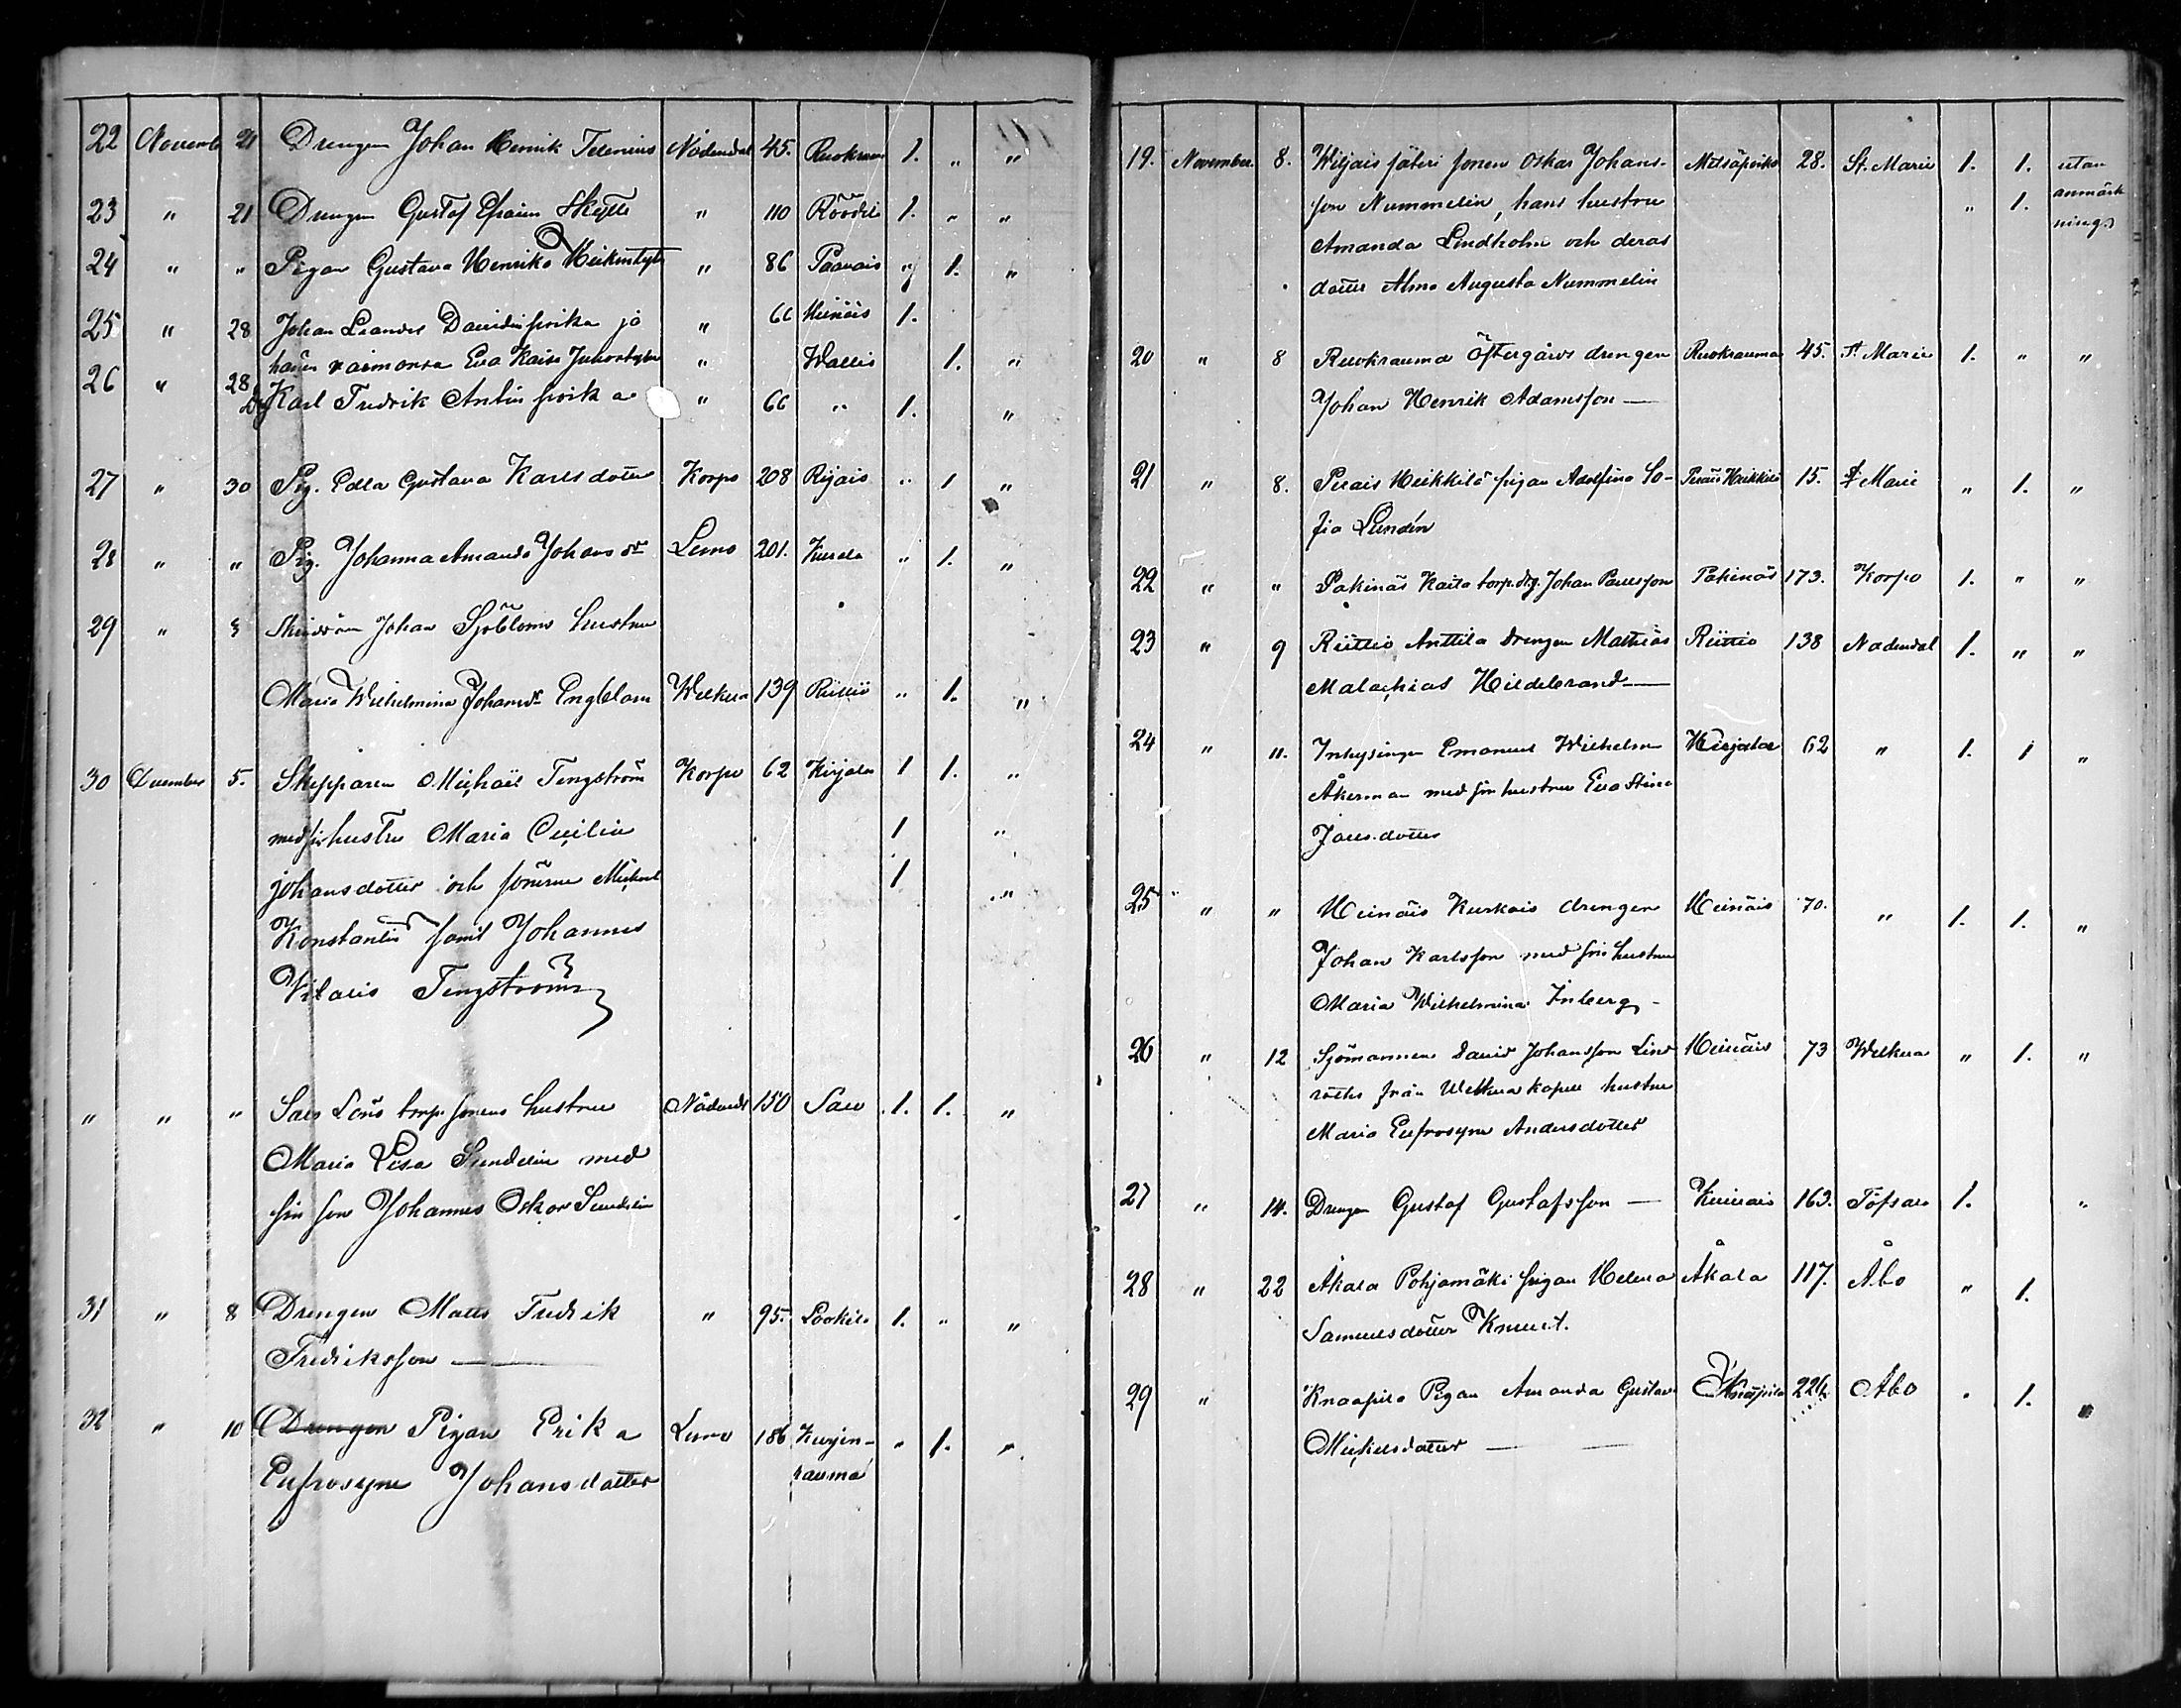 22 Novemb 21 Drengen Johan Henrik Telenius Nådendal 45. Ruokrauma 1. " "
23 " 21 Drengen Gustaf Efraim Skytte " 110 Röödilä 1. " "
24 " " Pigan Gustava Henrika Heikintytär " 86 Paavais " 1. "
25 " 28 Johan Leander Davidinpoika ja " 66 Heinäis 1.
hänen vaimonsa Eva Kaisa Juhontytär " Wallis 1. "
26 " 28 Drg Karl Fredrik Antinpoika " 66 " 1. "
27 " 30 Pig. Edla Gustava Karlsdotter Korpo 208 Rijais " 1 "
28 " " Pig. Johanna Amanda Johansdr Lemo 201. " 1. "
29 " Johan Sjöbloms hustru
Maria Wilhelmina Johansdr Engblom Welkua 139 Riittiö " 1. "
30 December 5. Skepparen Michaël Tengström Korpo 62 Kirjala 1 1. "
med sin hustru Maria Cecilia 1 "
johansdotter och sönerne Michael 1 "
Konstantin samt Johannes
Vilaris Tengström
" " " Salo torp. sonens hustru Nådend 150 Salo 1. 1. "
Maria Lisa Sundelin med
sin son Johannes Oskar Sundelin
31 " 8 Drengen Matts Fredrik " 95. Lookila 1. " "
Fredriksson —
32 " 10 Drengen Pigan Erika Lemo 186 Kurjen- " 1. "
Eufrosyne Johansdotter rauma
19. November 8. Wiljais säteri sonen Oskar Johans- 28. St. Marie 1. 1. utan
son Nummelin, hans hustru " 1. anmärk
Amanda Lindholm och deras ning.
dotter Alma Augusta Nummelin
20 " 8 Ruokrauma Östergårds drengen Ruokrauma 45. St Marie 1. " "
Johan Henrik Adamsson —
21 " 8. Perais Heikkilä pigan Adolfina So- Perais Heikkilä 15. St Marie " 1. "
fia Lundén
22 " " Pakinäs Kaila torp. drg. Johan Paulsson Pakinäs 173. Korpo 1. " "
23 " 9 Riittiö Anttila drengen Mathias Riittiö 138 Nadendal 1. " "
Malachias Hildebrand —
24 " 11. Inhysingen Emanuel Wilhelm Kirjala 62 " 1. 1 "
Åkerman med sin hustru Eva Stina
Joelsdotter
25 " " Heinäis Kurkais drengen Heinäis 70. " 1. 1. "
Johan Karlsson med sin hustru
Maria Wilhelmina Inberg -
26 " 12 Sjömannen David Johansson Lind Heinäis 73 Welkua " 1. "
roths från Welkua kapell hustru
Maria Eufrosyne Andersdotter
27 " 14. Drengen Gustaf Gustafsson — 163. Töfsala 1. "
28 " 22 Åkala Pohjamäki pigan Helena Åkala 117. Åbo " 1.
Samuelsdotter Knuut.
29 " Knaapila Pigan Amanda Gustava Knaapila 226. Åbo " 1. "
Michelsdotter —